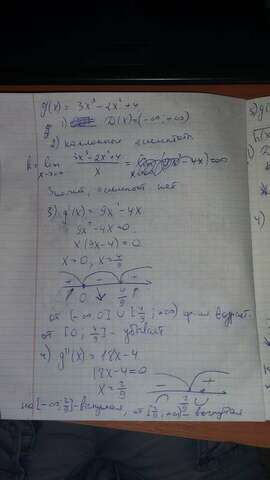 g(x) = 3x³ - 2x² + 4
1) D(x) = (-∞; +∞)
2) наклонные асимптоты
k = lim x→∞ (3x³ - 2x² + 4)/x = - 4x) = ∞
Значит, асимптот нет
3) g'(x) = 9x² - 4x
9x² - 4x = 0
x(9x - 4) = 0
x = 0, x = 4/9
+ - +
0 4/9
от (-∞, 0] ∪ [4/9; +∞) функ возраст.
от [0, 4/9] - убывает
4) g''(x) = 18x - 4
18x - 4 = 0
x = 2/9
- +
2/9
на [-∞; 2/9] - выпуклая, от [2/9, +∞) - вогнутая